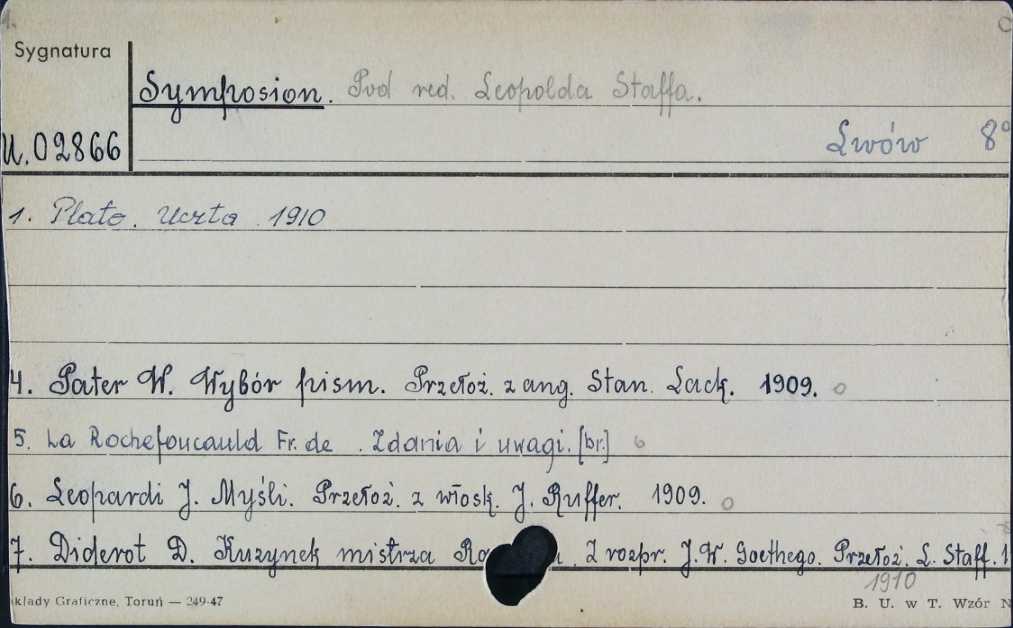 Sygnatura
Symposion. Pod red. Leopolda Staffa.
U.02866
Lwów 8°
1. Plato. Uczta 1910
4. Pater W. Wybór pism. Przełoż. z ang. Stan. Lack. 1909.
5. La Rochefoucauld Fr. de . Zdania i uwagi. [br.]
6. Leopardi J. Myśli. Przełoż. z włosk. J. Ruffer. 1909.
7. Diderot D. Kuzynek mistrza Z rozpr. J.W. Goethego. Przełoż. L. Staff.
1910
kłady Graficzne, Toruń — 249-47
B. U. w T. Wzór N